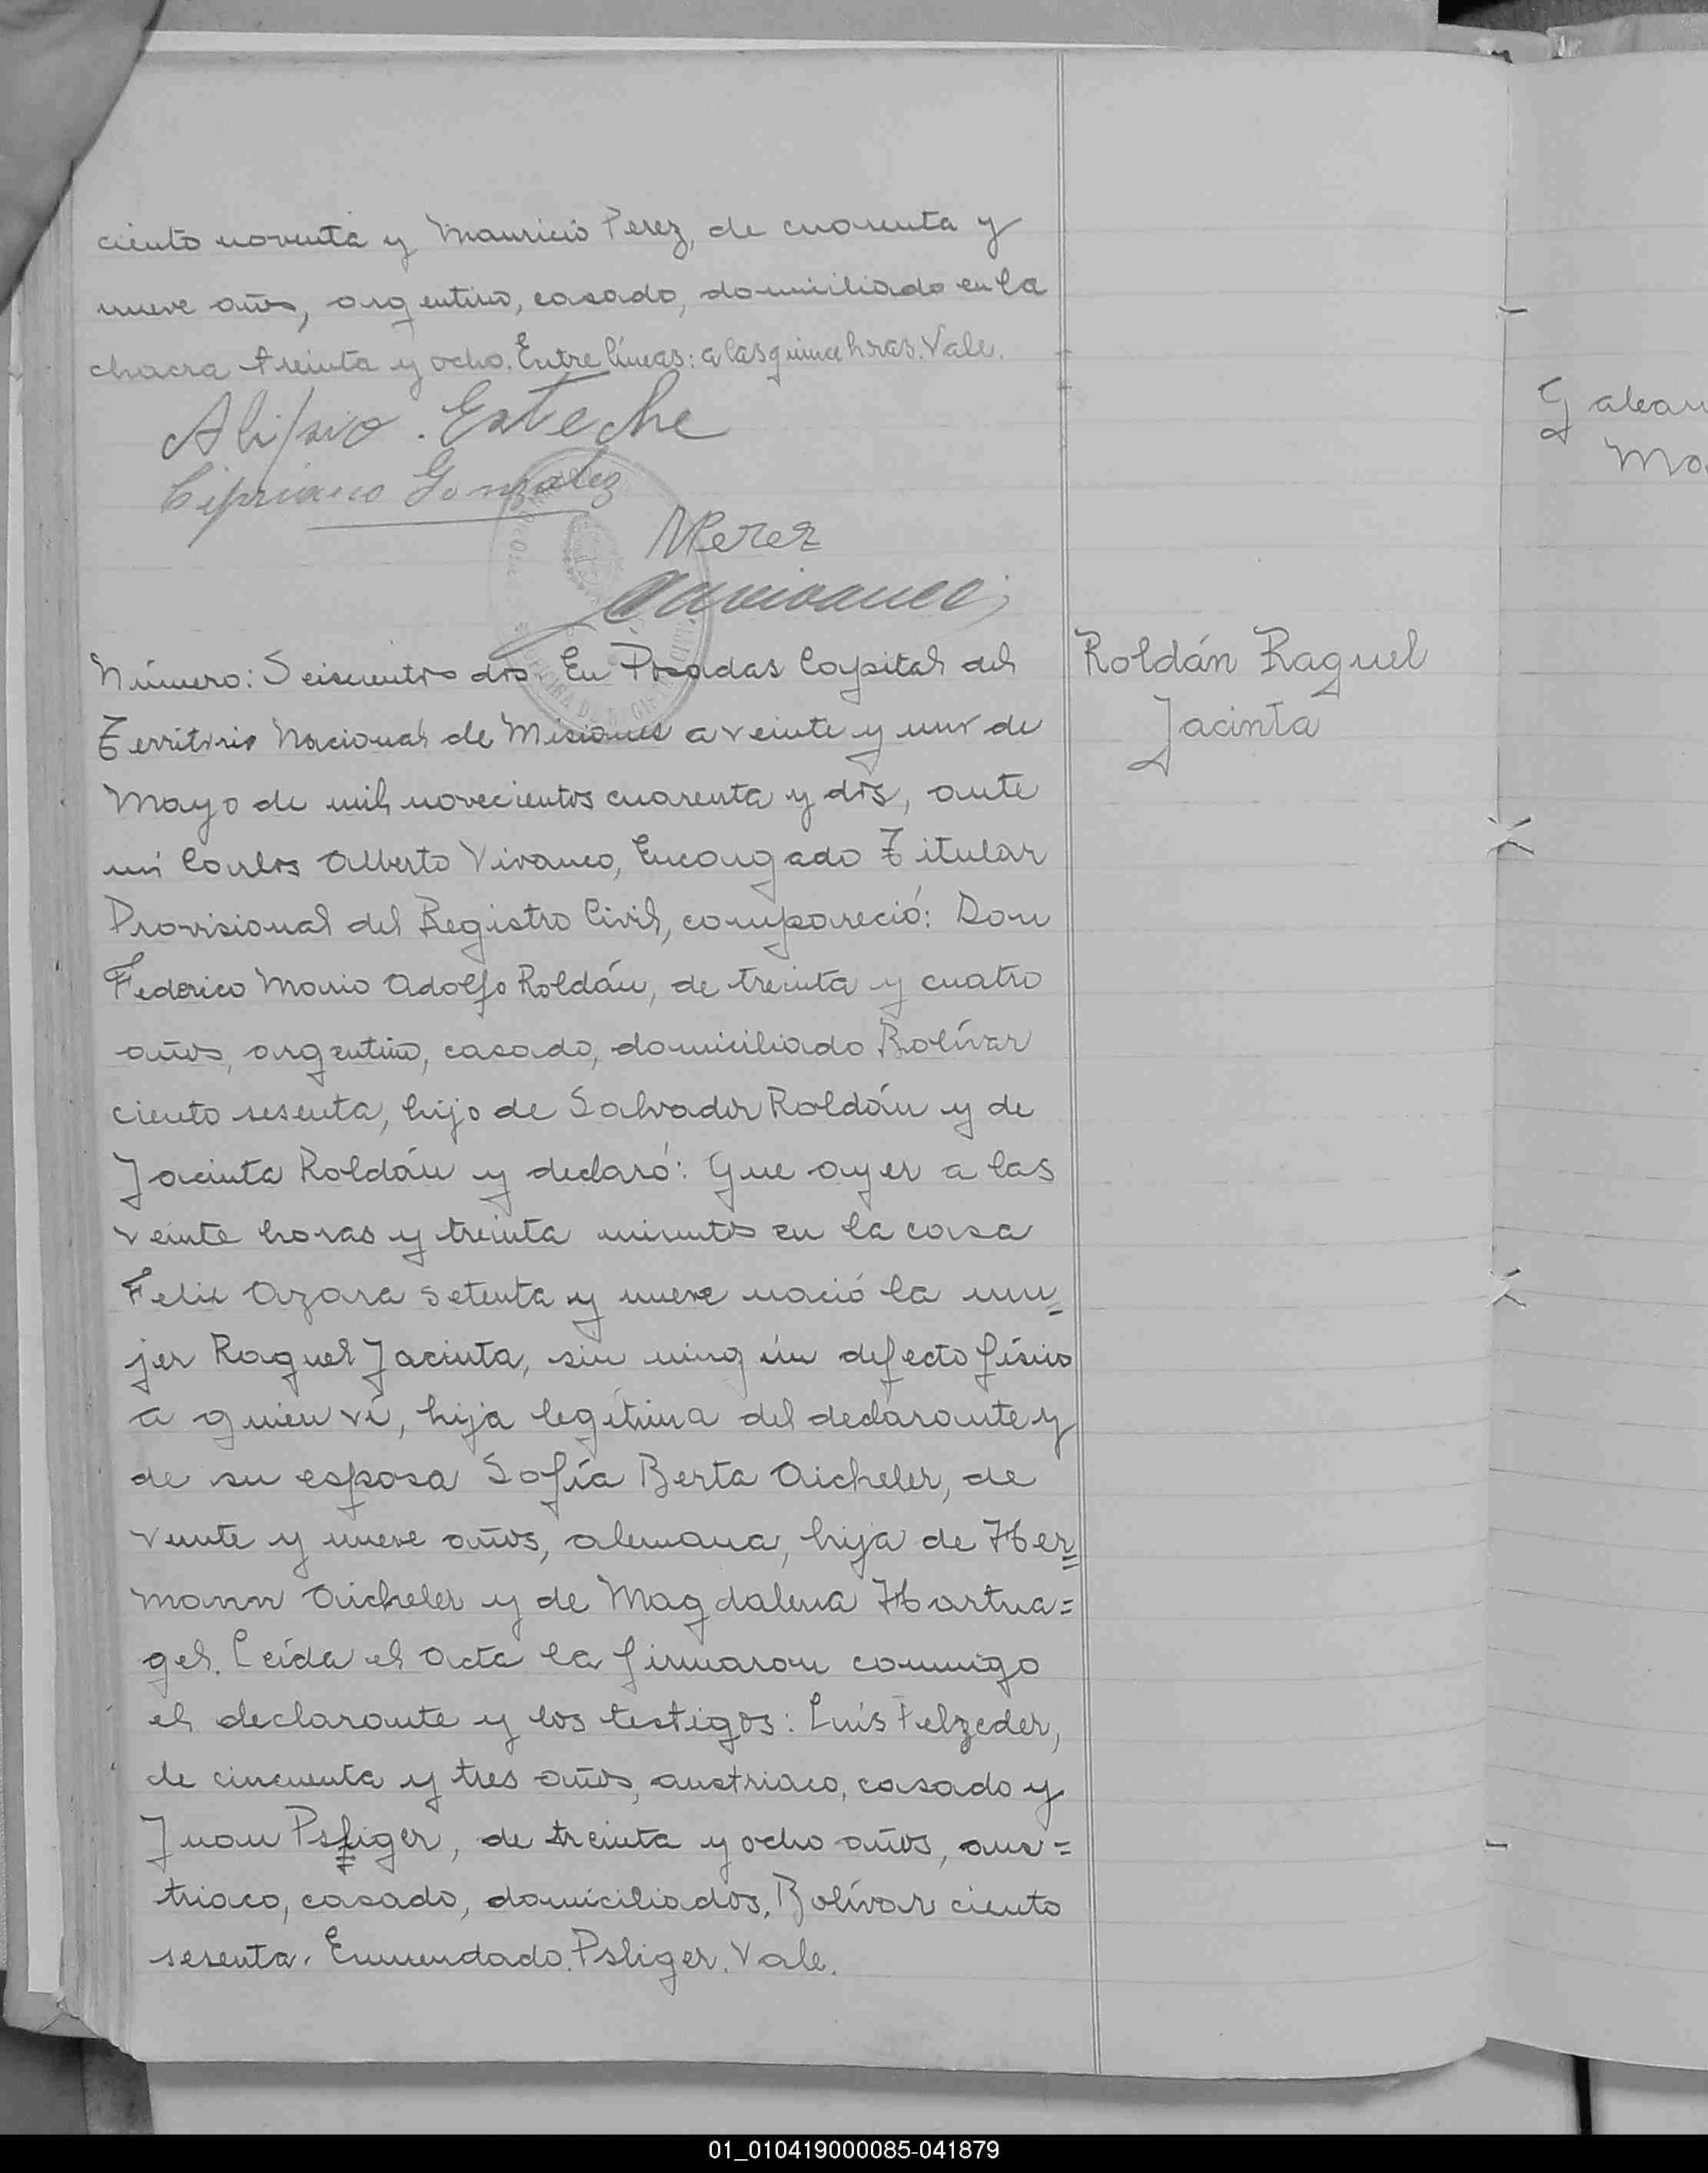 ciento noventa y Mauricio Perez, de cuarenta y
nueve años, argentino, casado, domiciliado en la
chacra treinta y ocho. Entre líneas: a las quince hras. Vale.
Alipio. Esteche
Cipriano Gonzalez
MPerez
Número: Seiscientos dos En Posadas Capital del
Territorio Nacional de Misiones a veinte y uno de
Mayo de mil novecientos cuarenta y dos, ante
mi Carlos Alberto Vivanco, Encargado Titular
Provisional del Registro Civil, compareció: Don
Federico Mario Adolfo Roldán, de treinta y cuatro
años, argentino, casado, domiciliado Bolívar
ciento sesenta, hijo de Salvador Roldán y de
Jacinta Roldán y declaró: Que ayer a las
veinte horas y treinta minutos en la casa
Felix Azara setenta y nueve nació la mu=
jer Raquel Jacinta, sin ningún defecto físico
a quien ví, hija legítima del declarante y
de su esposa Sofía Berta Aicheler, de
veinte y nueve años, alemana, hija de Her=
mann Aicheler y de Magdalena Hartna=
gel. Leída el Acta la firmaron conmigo
el declarante y los testigos: Luis Felzeder,
de cincuenta y tres años, austriaco, casado y
Juan Psliger, de treinta y ocho años, aus=
triaco, casado, domiciliados, Bolívar ciento
sesenta. Enmendado. Psliger. Vale.
Roldán Raquel
Jacinta
01_010419000085-041879